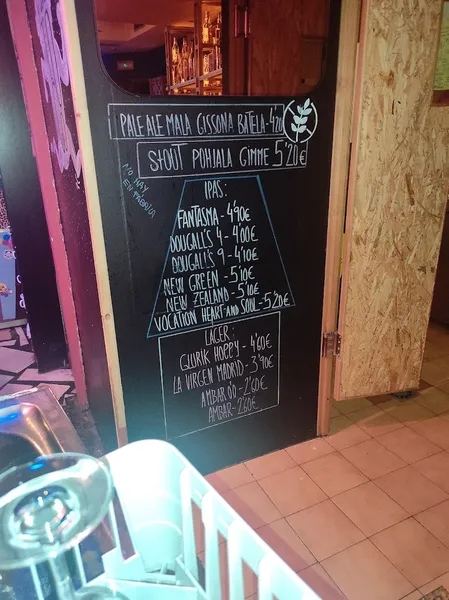 PALE ALE MALA GISSONA BATELA - 4'20
STOUT POHJALA GIMME 5'20€
NO HAY
EN FÁBRICA
IPAS:
FANTASMA - 4'90€
DOUGALL'S 4 - 4'00€
DOUGALL'S 9 - 4'10€
NEW GREEN - 5'10€
NEW ZEALAND - 5'10€
VOCATION HEART AND SOUL - 5'20€
LAGER:
GUURIK HOPPY - 4'60€
LA VIRGEN MADRID - 3'90€
AMBAR 0'0 - 2'60€
AMBAR - 2'60€